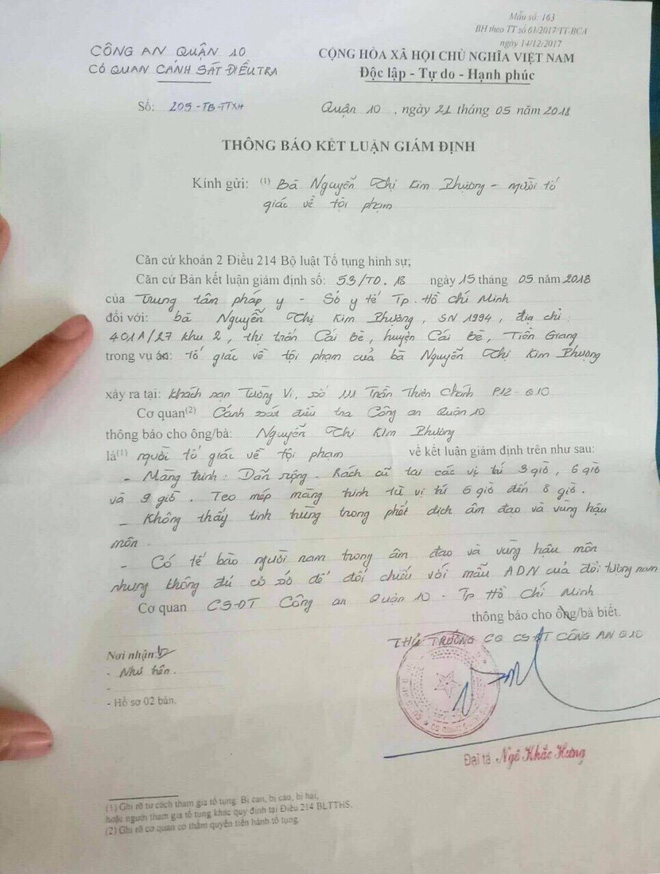 Mẫu số: 163
BH theo TT số 61/2017/TT-BCA
ngày 14/12/2017
CÔNG AN QUẬN 10
CƠ QUAN CẢNH SÁT ĐIỀU TRA
CỘNG HÒA XÃ HỘI CHỦ NGHĨA VIỆT NAM
Độc lập - Tự do - Hạnh phúc
Số: 205-TB-TTXH
Quận 10, ngày 21 tháng 05 năm 2018
THÔNG BÁO KẾT LUẬN GIÁM ĐỊNH
Kính gửi: (1) Bà Nguyễn Thị Kim Phượng - người tố
giác về tội phạm
Căn cứ khoản 2 Điều 214 Bộ luật Tố tụng hình sự;
Căn cứ Bản kết luận giám định số: 53/TD.18 ngày 15 tháng 05 năm 2018
của Trung tâm pháp y - Sở y tế Tp. Hồ Chí Minh
đối với: bà Nguyễn Thị Kim Phượng, SN 1994, địa chỉ
401A/27 khu 2, thị trấn Cái Bè, huyện Cái Bè, Tiền Giang
trong vụ án: tố giác về tội phạm của bà Nguyễn Thị Kim Phượng
xảy ra tại: khách sạn Tường Vi, số 111 Trần Thiện Chánh P12-Q10
Cơ quan(2) Cảnh sát điều tra Công an Quận 10
thông báo cho ông/bà: Nguyễn Thị Kim Phượng
là(1) người tố giác về tội phạm về kết luận giám định trên như sau:
- Màng trinh: Dãn rộng - Rách cũ tại các vị trí 3 giờ, 6 giờ
và 9 giờ. Teo mép màng trinh từ vị trí 6 giờ đến 8 giờ.
- Không thấy tinh trùng trong phết dịch âm đạo và vùng hậu
môn.
- Có tế bào người nam trong âm đạo và vùng hậu môn
nhưng không đủ cơ số để đối chiếu với mẫu ADN của đối tượng nam
Cơ quan CSĐT Công an Quận 10 - Tp Hồ Chí Minh
thông báo cho ông/bà biết.
THỦ TRƯỞNG CQ CSĐT CÔNG AN Q10
Nơi nhận:
- Như trên.
-
- Hồ sơ 02 bản.
Đại tá. Ngô Khắc Hưng
(1) Ghi rõ tư cách tham gia tố tụng: Bị can, bị cáo, bị hại,
hoặc người tham gia tố tụng khác quy định tại Điều 214 BLTTHS.
(2) Ghi rõ cơ quan có thẩm quyền tiến hành tố tụng.